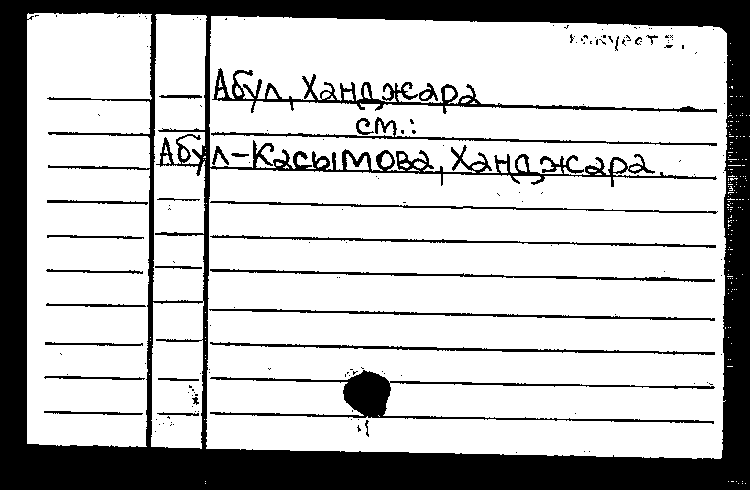 Абул, Ханджара
см.:
Абул-Касымова, Ханджара.